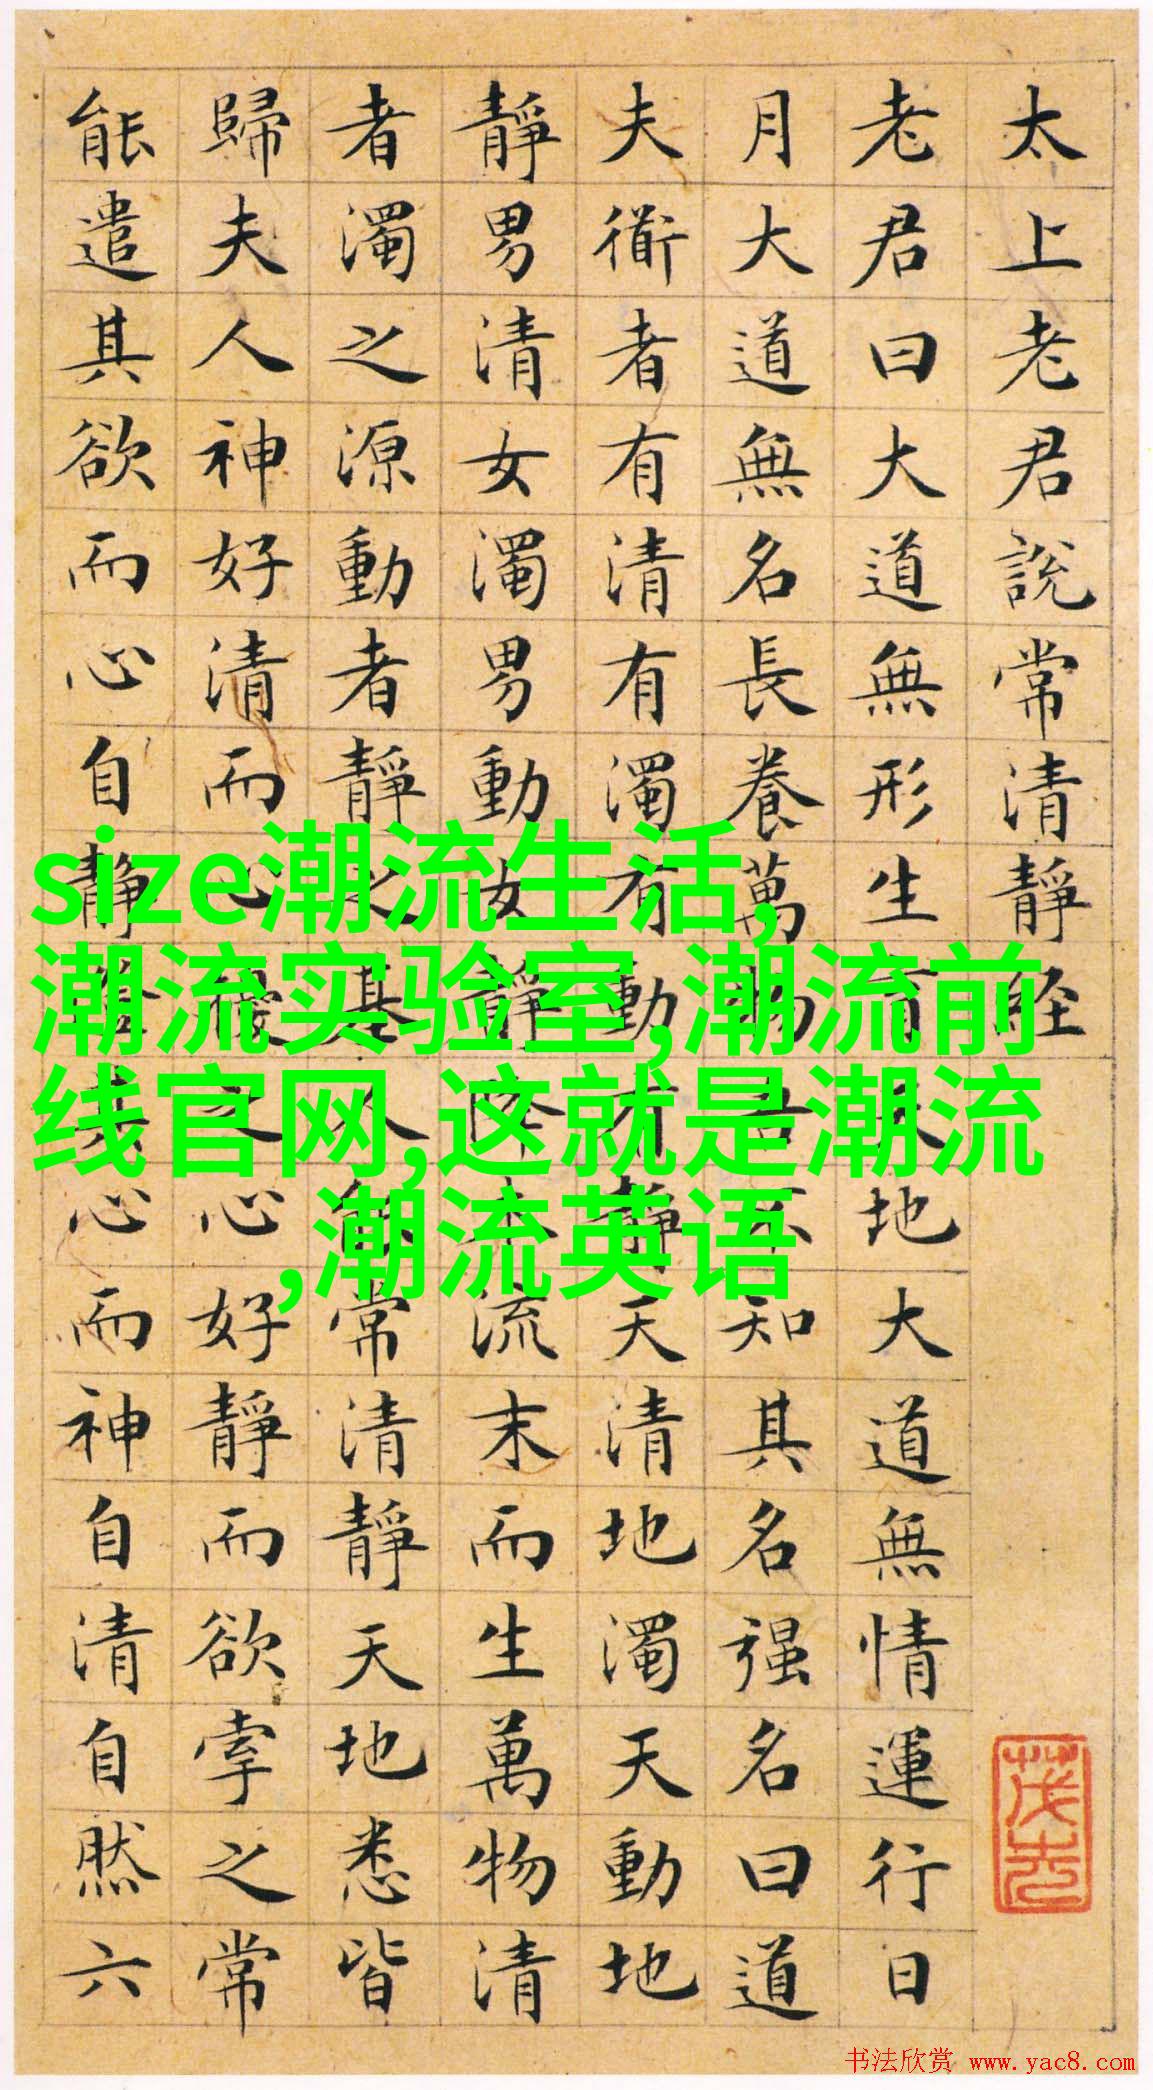 太上老君說常清靜経
老君曰大道無形生育天地大道無情運行日
月大道無名長養萬物吾不知其名强名曰道
夫衜者有清有濁有動有靜天清地濁天動地
靜男清女濁男動女靜降本流末而生萬物清
者濁之源動者靜之基人能常清靜天地悉皆
歸夫人神好清而心擾之心好靜而欲牽之常
能遣其欲而心自靜澄其心而神自清自然六
size潮流生活,
潮流实验室,潮流前
线官网,这就是潮流
,潮流英语
书法欣赏 www.yac8.com